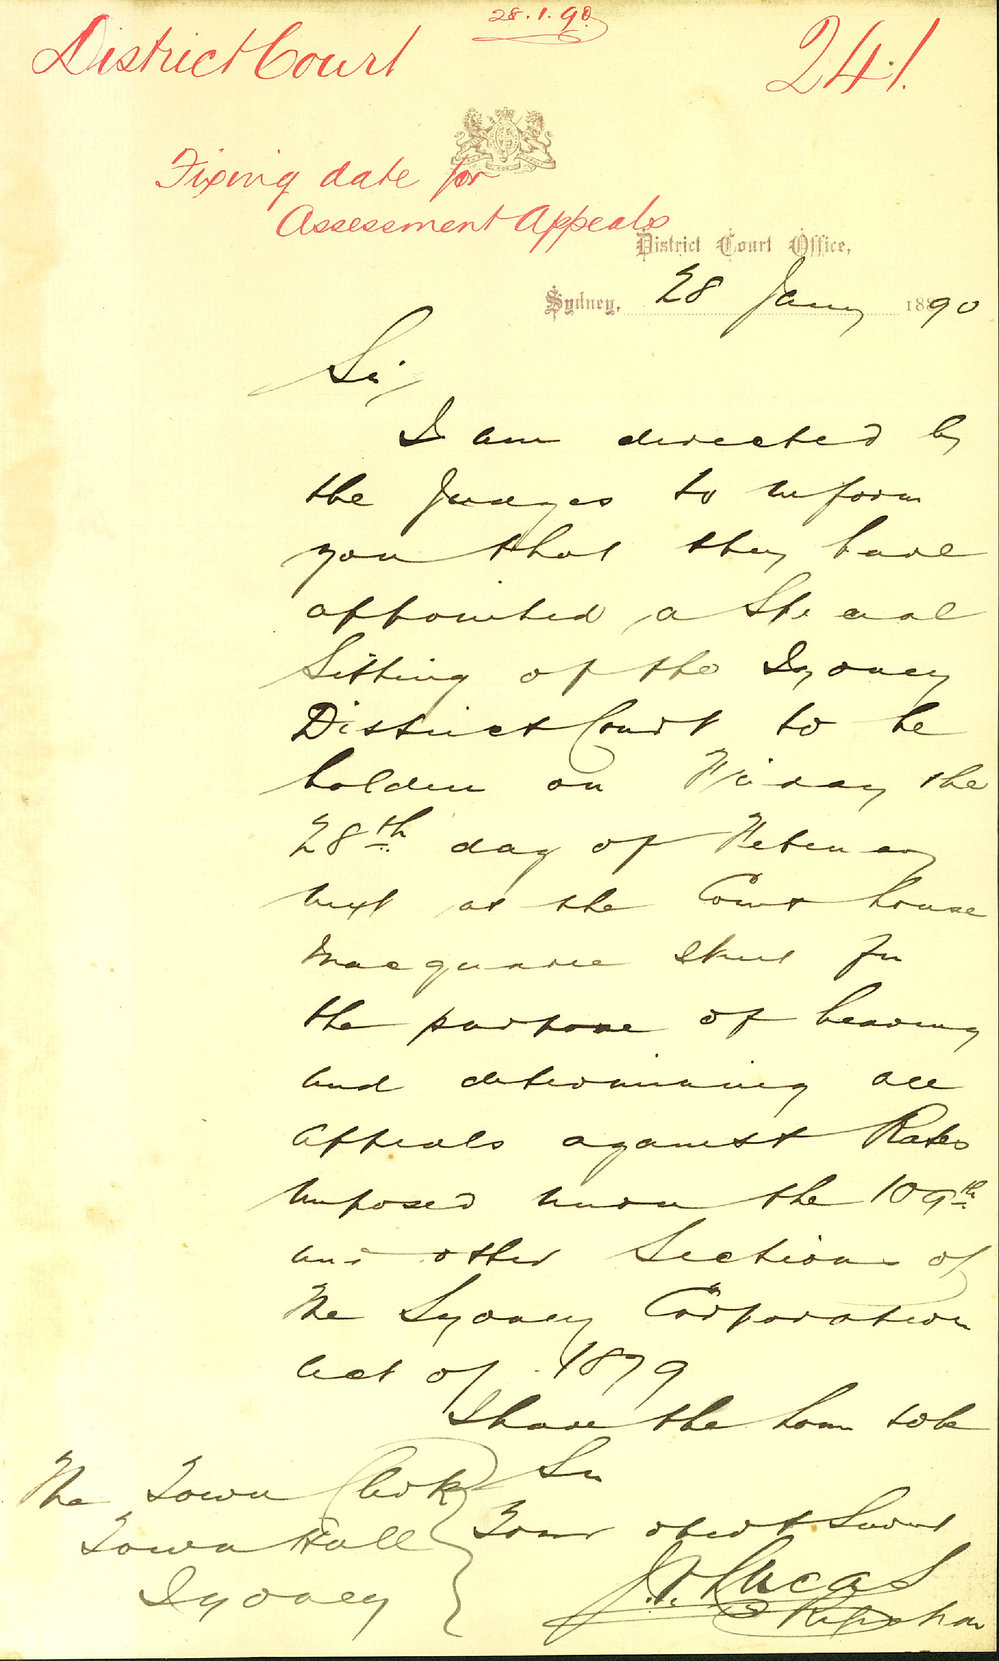 28.1.90
District Court
241.
Fixing date for
Assessment Appeals
District Court Office,
Sydney, 28 Jany 1890
Sir,
I am directed by
the Judges to inform
you that they have
appointed a Special
Sitting of the Sydney
District Court to be
holden on Friday the
28th day of February
next at the Court house
Macquarie Street for
the purpose of hearing
and determining all
appeals against Rates
imposed under the 109th
and other Sections of
The Sydney Corporation
Act of 1879
I have the honr to be
Sir
Your obedt Servt
Lucas
Registrar
The Town Clerk
Town Hall
Sydney